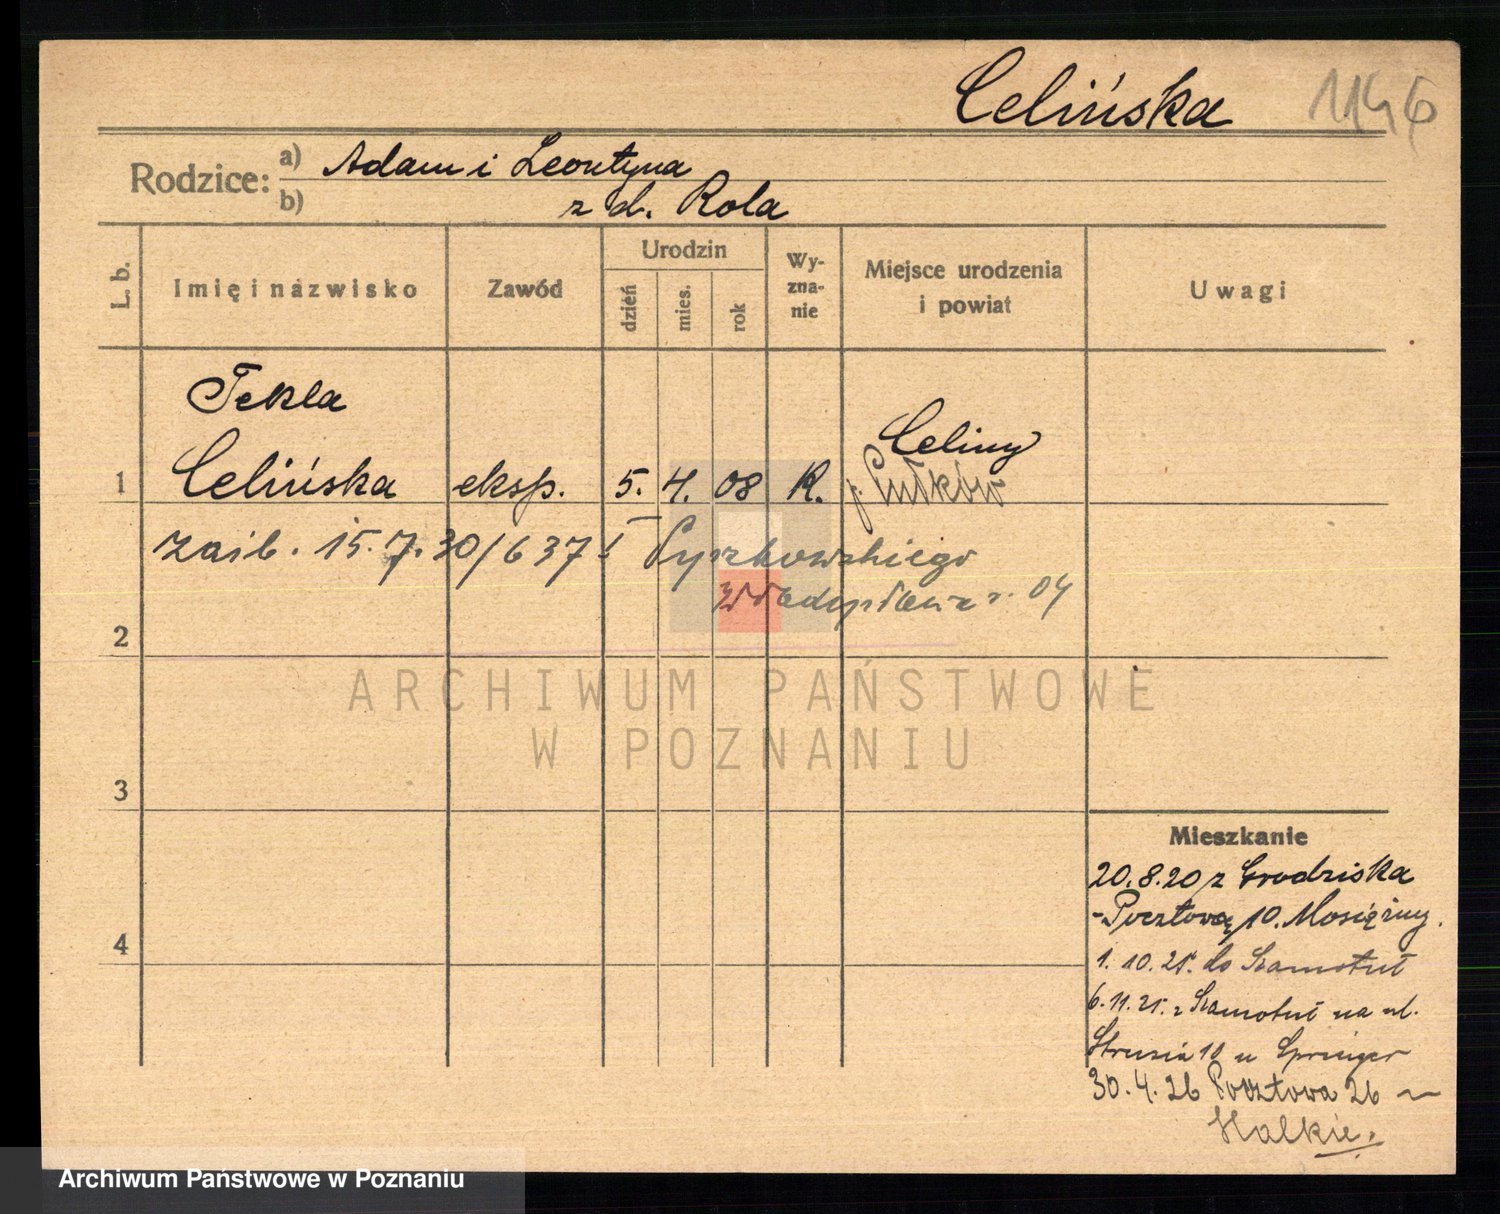 Celińska 1146
Rodzice: a) Adam i Leontyna
b) z d. Rola
L. b.
Imię i nazwisko
Zawód
Urodzin
dzień
mies.
rok
Wy-
zna-
nie
Miejsce urodzenia
i powiat
Uwagi
Tekla
Celiny
1 Celińska eksp. 5. 4. 08 R. p. Łuków
15.7.30/637 Pyszkowskiego
Władysława r. 04
2
ARCHIWUM PAŃSTWOWE
W POZNANIU
3
Mieszkanie
20.8.20 z Grodziska
-Pocztową 10. Mosiężny.
4
1.10.25. do Szamotuł
6.11.25. z Szamotuł na ul.
Strusia 10 u Springer
30.4.26 Pocztowa 26
Halkie.
Archiwum Państwowe w Poznaniu